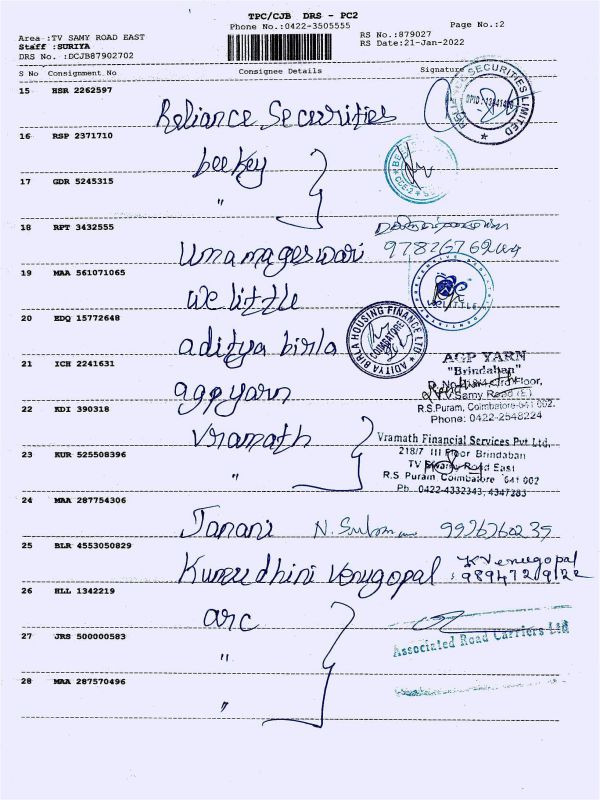 TPC/CJB DRS - PC2
Phone No.:0422-3505555
Page No.:2
Area :TV SAMY ROAD EAST
Staff :SURIYA
DRS No. :DCJB87902702
RS No.:879027
RS Date:21-Jan-2022
S No Consignment No Consignee Details Signature
15 HSR 2262597
Reliance Securities
RELIANCE SECURITIES LIMITED
16 RSP 2371710
beekey
17 GDR 5245315
"
18 RPT 3432555
Umamageswari
19 MAA 561071065
we little
WELITTLE
20 EDQ 15772648
aditya birla
ADITYA BIRLA HOUSING FINANCE LTD
COIMBATORE
21 ICH 2241631
agp yarn
AGP YARN
"Brindaban"
Floor,
TV Samy Road (E)
R.S.Puram, Coimbatore-641 002.
Phone: 0422-2548224
22 KDI 390318
Vramath
Vramath Financial Services Pvt Ltd,
218/7 III Floor Brindaban
TV Swamy Road East
R.S. Puram Coimbatore 641 002
Ph 0422-4332343, 4347283
23 KUR 525508396
"
24 MAA 287754306
Janani
25 BLR 4553050829
Kumudhini Venugopal K Venugopal
26 HLL 1342219
arc
Associated Road Carriers Ltd
27 JRS 500000583
"
28 MAA 287570496
"